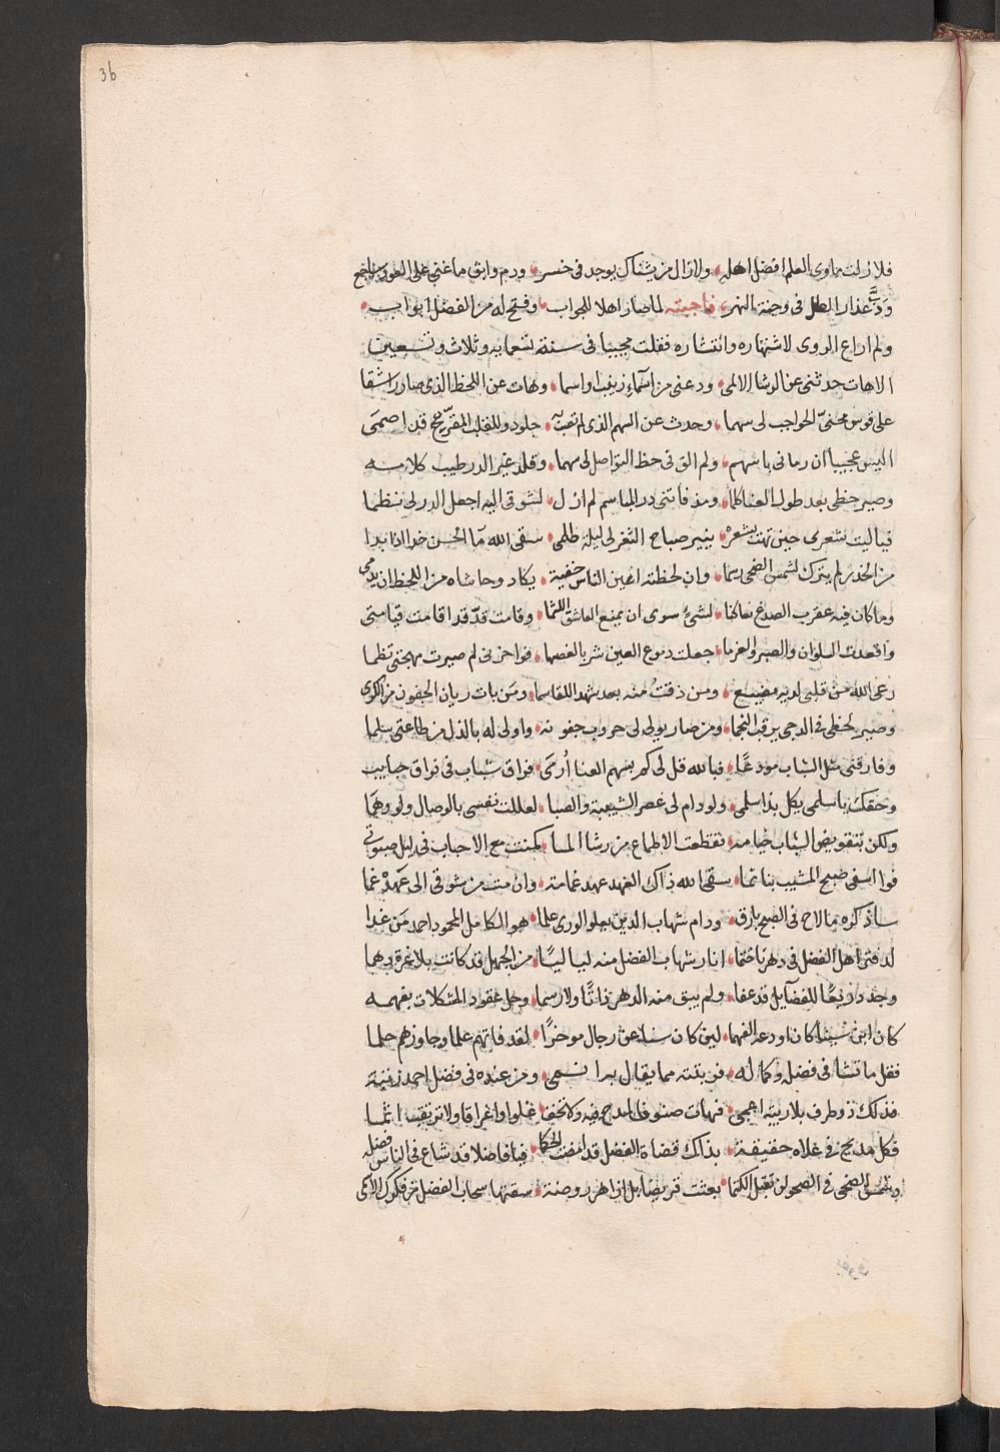 36
فلا زلت مأوى العلم افضل اهله ولا زال من يشناك يوجد فى خسر ودم وابق ما غنى على العود ساجع
ودب عذار الظل فى وجنة النهر فاجبته لما صار اهلا للجواب وفتح له من الفضل ابواب
ولم اراع الروى لاشتهاره وانتشاره فقلت مجيبا فى سنة تسعمايه وثلاث وتسعين
الا هات حدثنى عن الرشا الالمى ودعنى من اسماء زينب واسما وهات عن اللحظ الذى صار راشقا
على قوس محنى الحواجب لى سهما وحدث عن السهم الذى لم تصب به جلود وللقلب المقرح قد اصمى
اليس عجيبا ان رمانى باسهم ولم الق فى حظ التواصل لى سهما وقلد غير الدر طيب كلامه
وصير حظى بعد طول العنا كلما ومذ فاتنى در المباسم لم ازل لشوقى اليه اجعل الدر لى نظما
فياليت شعرى حين تهت بشعره ينير صباح الثغر لى ليلة ظلمى سقى الله ما الحسن خدا اذا بدا
من الخدر لم يترك لشمس الضحى رسما وان لحظته اعين الناس خفية يكاد وحاشاه من اللحظ ان يدمى
وما كان فيه عقرب الصدغ عاكفا لشئ سوى ان يمنع العاشق اللثما وقامت قد قد اقامت قيامتى
واقعدت السلوان والصبر والغرما جعلت دموع العين شربا لغصها فواحزنى لم صيرت مهجتى تظما
رعى الله من قلبى لديه مضيع ومن ذقت منه بعد شهد اللقا سما ومن بات ريان الجفون من الكرى
وصير لحظى فى الدجى يرقب النجما ومن صار يولى لى حروب جفونه واولى له بالذل من طاعتى سلما
وفارقنى مثل الشباب مودعا فبالله قل لى كم بسهم العنا أرمى فراق شباب فى فراق حبايب
وحقك يا سلمى يكل بذا سلمى ولو دام لى عصر الشبيبة والصبا لعللت نفسى بالوصال ولو وهما
ولكن بتقويض الشباب خيامه تقطعت الاطماع من رشا المى كمنت مع الاحباب فى ليل صبوتى
فوا اسفى صبح المشيب بنا نما سقى الله ذاك العهد عهد غمامة وان مت من شوقى الى عهده غما
ساذكره ما لاح فى الصبح بارق ودام شهاب الدين يعلو الورى علما هو الكامل المحمود احمد من غدا
لدفتر اهل الفضل فى دهرنا ختما انار شهاب الفضل منه لياليا من الجهل قد كانت بلا غرة دهما
وجدد ربعا للفضايل قد عفا ولم يبق منه الدهر ذاتا ولا رسما وحل عقود المشكلات بفهمه
كان ابن سينا كان اودعه الفهما لين كان سنا عن رجال موخرا لقد فاتهم علما وجاوزهم حلما
فقل ما تشا فى فضله وكماله فربته مما يقال به اسمى ومن عنده فى فضل احمد ريبة
فذلك ذو طرف بلا ريبه اعمى فهات صنوف المدح فيه ولا تخف غلوا واغراقا ولا ترتقب اثما
فكل مديح فى علاه حقيقة بذلك قضاة الفضل قد امضت الحكما فيا فاضلا قد شاع فى الناس فضله
وشمس الضحى فى الصحو لن تقبل الكتما بعثت قريضا بل ازاهر روضة سقتها سحاب الفضل من فكرك الاسمى